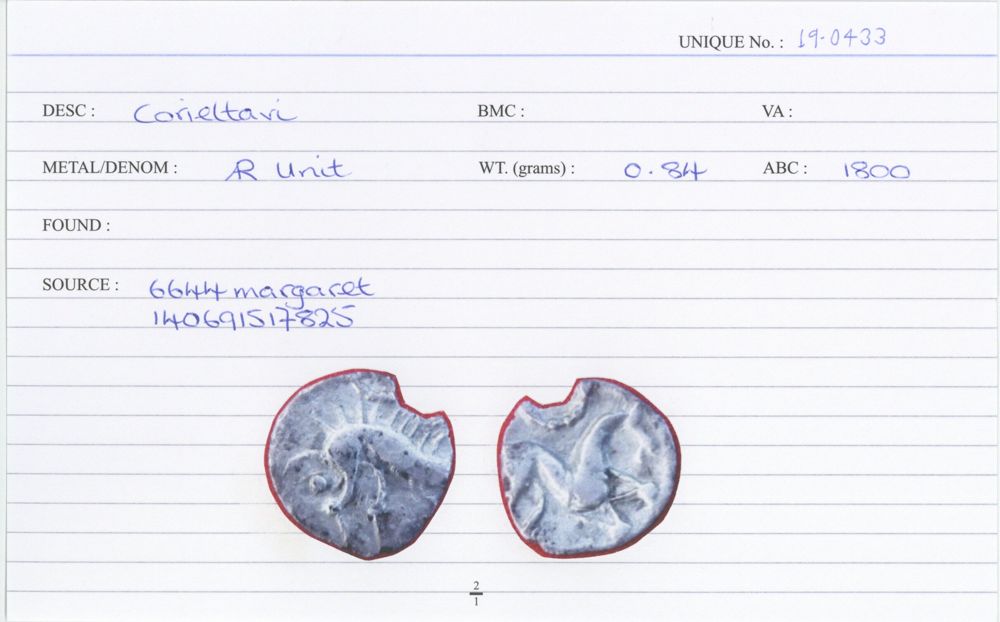 UNIQUE No. : 19-0433
DESC : Corieltavi BMC : VA :
METAL/DENOM : AR Unit WT. (grams) : 0.84 ABC : 1800
FOUND :
SOURCE : 6644 margaret
140691517825
2
1